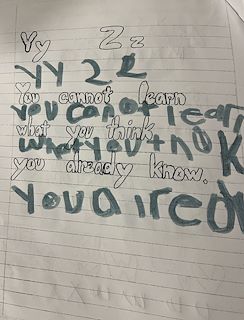 Yy Zz
YY ZZ
You cannot learn
you canot learn
what you think
what you think
you already know.
you alread